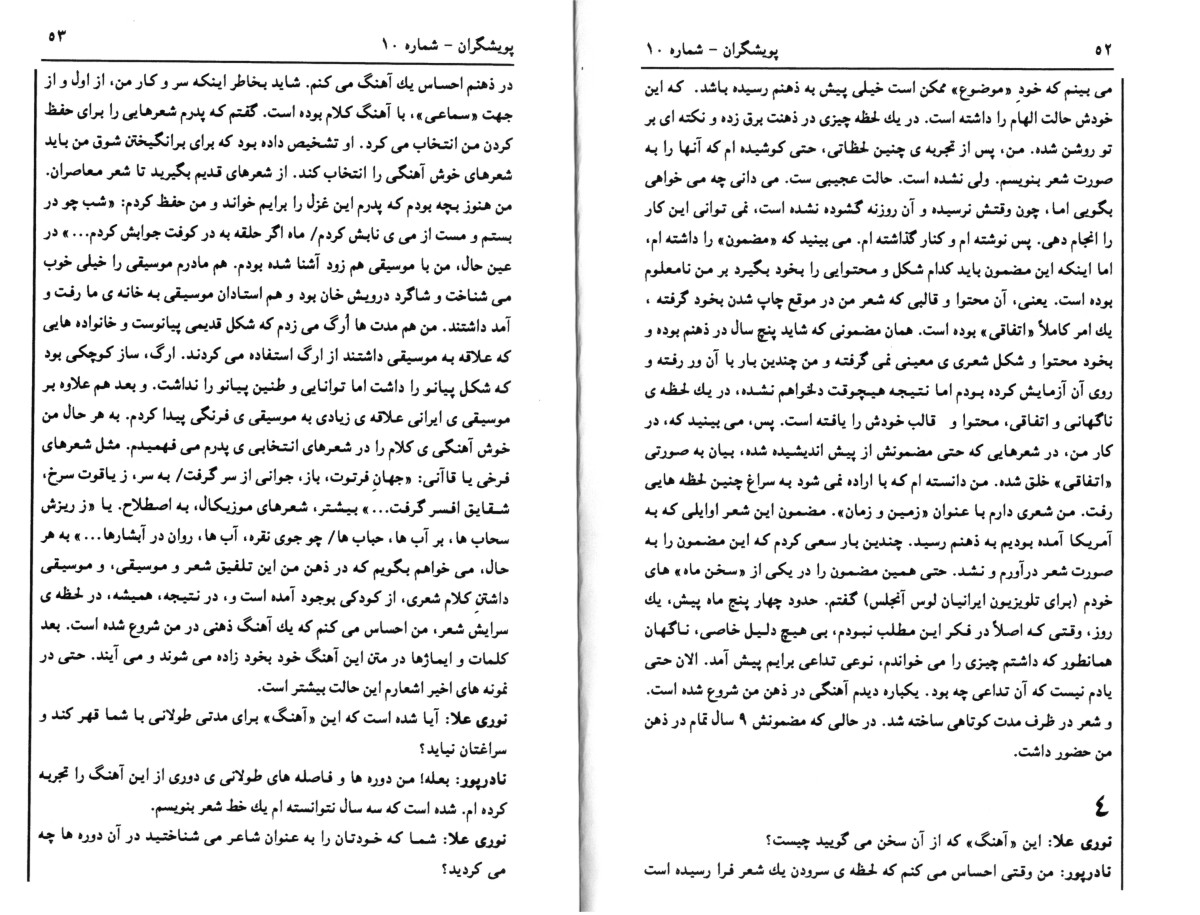 ۵۲
پویشگران - شماره ۱۰
می بینم که خودِ «موضوع» ممکن است خیلی پیش به ذهنم رسیده باشد. که این
خودش حالت الهام را داشته است. در یك لحظه چیزی در ذهنت برق زده و نکته ای بر
تو روشن شده. من، پس از تجربه ی چنین لحظاتی، حتی کوشیده ام که آنها را به
صورت شعر بنویسم. ولی نشده است. حالت عجیبی ست. می دانی چه می خواهی
بگویی اما، چون وقتش نرسیده و آن روزنه گشوده نشده است، نمی توانی این کار
را انجام دهی. پس نوشته ام و کنار گذاشته ام. می بینید که «مضمون» را داشته ام،
اما اینکه این مضمون باید کدام شکل و محتوایی را بخود بگیرد بر من نامعلوم
بوده است. یعنی، آن محتوا و قالبی که شعر من در موقع چاپ شدن بخود گرفته ،
یك امر کاملاً «اتفاقی» بوده است. همان مضمونی که شاید پنج سال در ذهنم بوده و
بخود محتوا و شکل شعری ی معینی نمی گرفته و من چندین بار با آن ور رفته و
روی آن آزمایش کرده بودم اما نتیجه هیچوقت دلخواهم نشده، در یك لحظه ی
ناگهانی و اتفاقی، محتوا و قالب خودش را یافته است. پس، می بینید که، در
کار من، در شعرهایی که حتی مضمونش از پیش اندیشیده شده، بیان به صورتی
«اتفاقی» خلق شده. من دانسته ام که با اراده نمی شود به سراغ چنین لحظه هایی
رفت. من شعری دارم با عنوان «زمین و زمان». مضمون این شعر اوایلی که به
آمریکا آمده بودیم به ذهنم رسید. چندین بار سعی کردم که این مضمون را به
صورت شعر درآورم و نشد. حتی همین مضمون را در یکی از «سخن ماه» های
خودم (برای تلویزیون ایرانیان لوس آنجلس) گفتم. حدود چهار پنج ماه پیش، یك
روز، وقتی که اصلاً در فکر این مطلب نبودم، بی هیچ دلیل خاصی، ناگهان
همانطور که داشتم چیزی را می خواندم، نوعی تداعی برایم پیش آمد. الان حتی
یادم نیست که آن تداعی چه بود. یکباره دیدم آهنگی در ذهن من شروع شده است.
و شعر در ظرف مدت کوتاهی ساخته شد. در حالی که مضمونش ۹ سال تمام در ذهن
من حضور داشت.
٤
نوری علا: این «آهنگ» که از آن سخن می گویید چیست؟
نادرپور: من وقتی احساس می کنم که لحظه ی سرودن یك شعر فرا رسیده است
پویشگران - شماره ۱۰
۵۳
در ذهنم احساس یك آهنگ می کنم. شاید بخاطر اینکه سر و کار من، از اول و از
جهت «سماعی»، با آهنگ کلام بوده است. گفتم که پدرم شعرهایی را برای حفظ
کردن من انتخاب می کرد. او تشخیص داده بود که برای برانگیختن شوق من باید
شعرهای خوش آهنگی را انتخاب کند. از شعرهای قدیم بگیرید تا شعر معاصران.
من هنوز بچه بودم که پدرم این غزل را برایم خواند و من حفظ کردم: «شب چو در
بستم و مست از می ی نابش کردم/ ماه اگر حلقه به در کوفت جوابش کردم...» در
عین حال، من با موسیقی هم زود آشنا شده بودم. هم مادرم موسیقی را خیلی خوب
می شناخت و شاگرد درویش خان بود و هم استادان موسیقی به خانه ی ما رفت و
آمد داشتند. من هم مدت ها اُرگ می زدم که شکل قدیمی پیانوست و خانواده هایی
که علاقه به موسیقی داشتند از ارگ استفاده می کردند. ارگ، ساز کوچکی بود
که شکل پیانو را داشت اما توانایی و طنین پیانو را نداشت. و بعد هم علاوه بر
موسیقی ی ایرانی علاقه ی زیادی به موسیقی ی فرنگی پیدا کردم. به هر حال من
خوش آهنگی ی کلام را در شعرهای انتخابی ی پدرم می فهمیدم. مثل شعرهای
فرخی یا قاآنی: «جهانِ فرتوت، باز، جوانی از سر گرفت/ به سر، ز یاقوت سرخ،
شقایق افسر گرفت...» بیشتر، شعرهای موزیکال، به اصطلاح. یا «ز ریزش
سحاب ها، بر آب ها، حباب ها/ چو جوی نقره، آب ها، روان در آبشارها...» به هر
حال، می خواهم بگویم که در ذهن من این تلفیق شعر و موسیقی، و موسیقی
داشتنِ کلام شعری، از کودکی بوجود آمده است و، در نتیجه، همیشه، در لحظه ی
سرایش شعر، من احساس می کنم که یك آهنگ ذهنی در من شروع شده است. بعد
کلمات و ایماژها در متن این آهنگ خود بخود زاده می شوند و می آیند. حتی در
نمونه های اخیر اشعارم این حالت بیشتر است.
نوری علا: آیا شده است که این «آهنگ» برای مدتی طولانی با شما قهر کند و
سراغتان نیاید؟
نادرپور: بعله! من دوره ها و فاصله های طولانی ی دوری از این آهنگ را تجربه
کرده ام. شده است که سه سال نتوانسته ام یك خط شعر بنویسم.
نوری علا: شما که خودتان را به عنوان شاعر می شناختید در آن دوره ها چه
می کردید؟